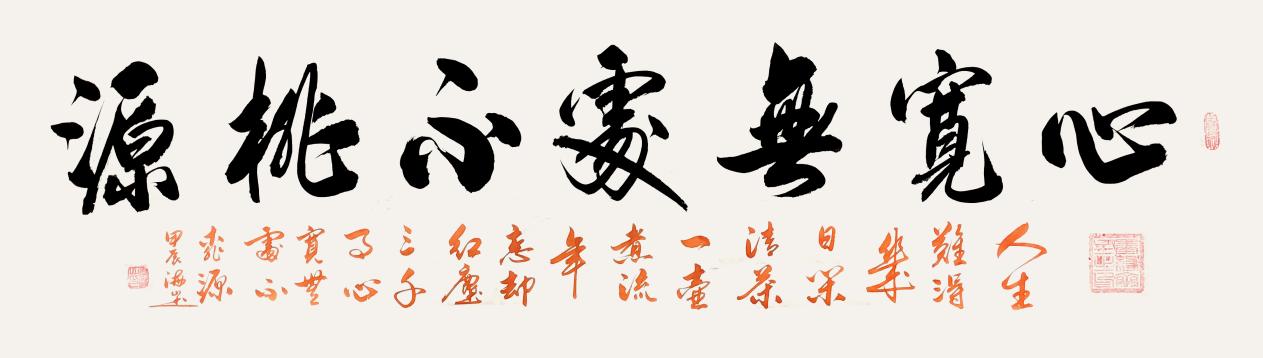 心寬無處不桃源
人生
難得
幾
日閑
清茶
一壺
煮流
年
忘却
紅塵
三千
事心
寬無
處不
桃源
甲辰海